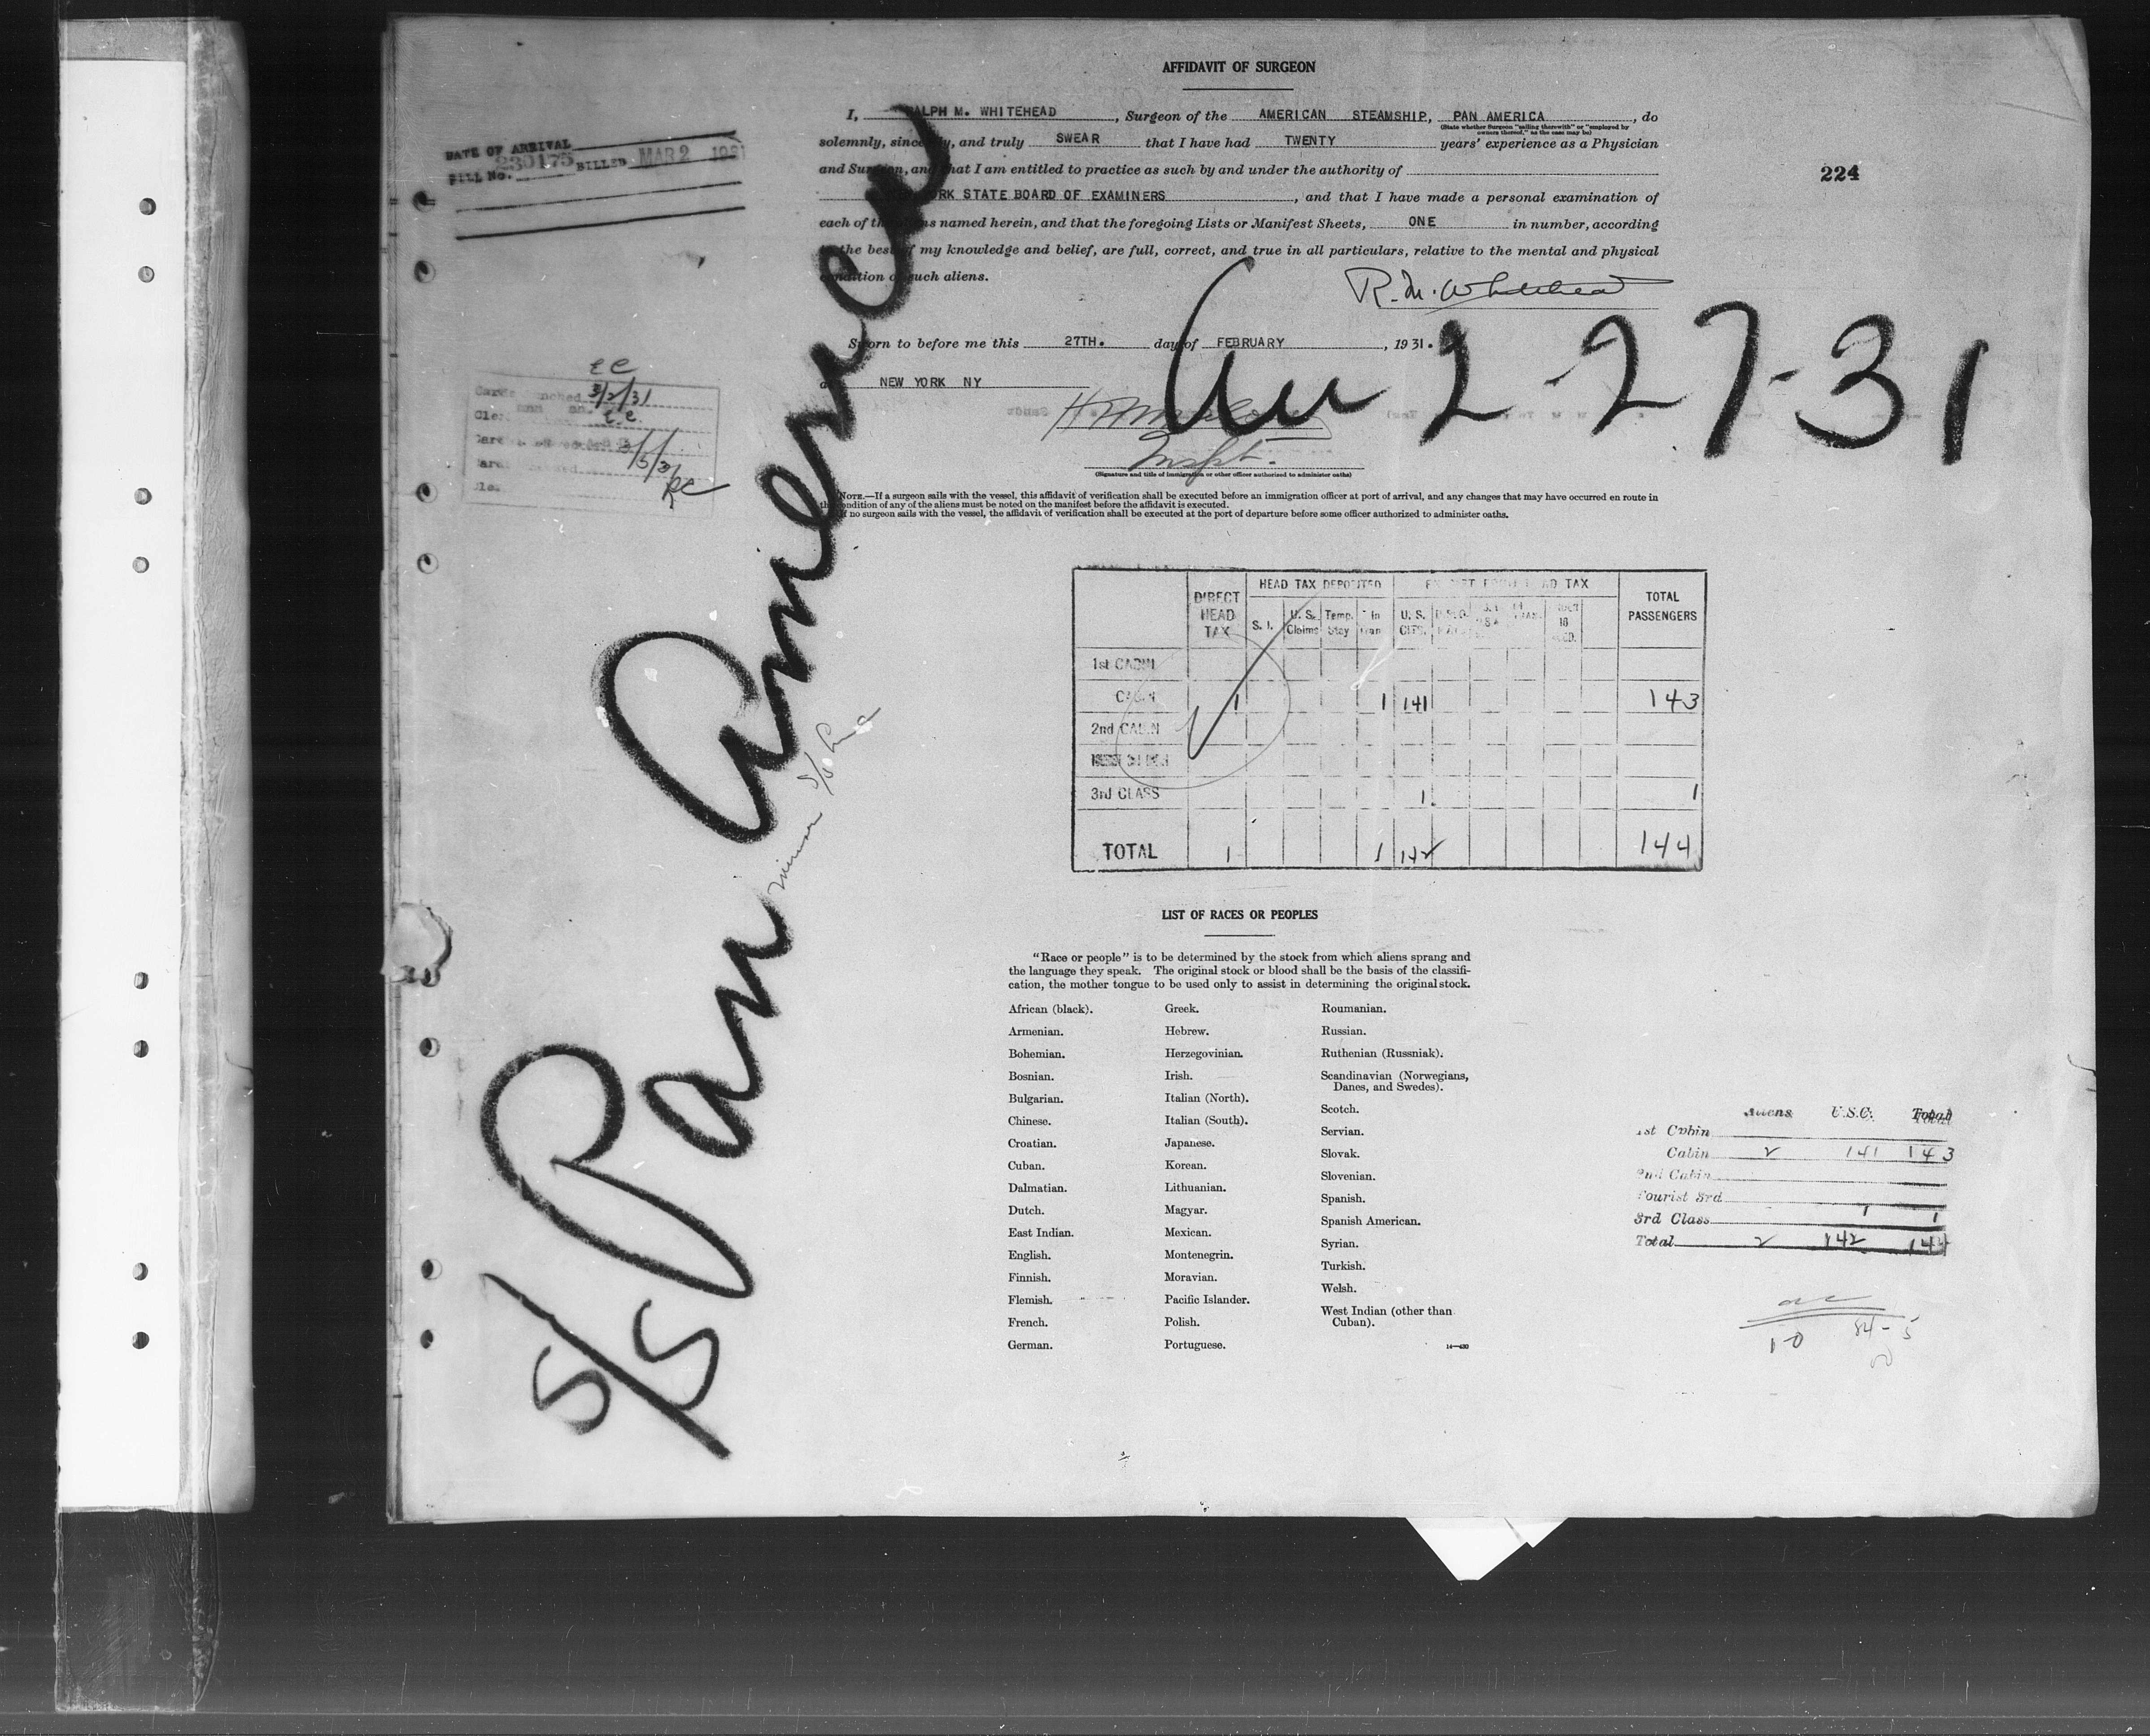 AFFIDAVIT OF SURGEON
I, RALPH M. WHITEHEAD, Surgeon of the AMERICAN STEAMSHIP, PAN AMERICA, do
(State whether Surgeon "sailing therewith" or "employed by owners thereof," as the case may be)
solemnly, sincerely, and truly SWEAR that I have had TWENTY years' experience as a Physician
and Surgeon, and that I am entitled to practice as such by and under the authority of
YORK STATE BOARD OF EXAMINERS, and that I have made a personal examination of
each of the aliens named herein, and that the foregoing Lists or Manifest Sheets, ONE in number, according
to the best of my knowledge and belief, are full, correct, and true in all particulars, relative to the mental and physical
condition of such aliens.
R. M. Whitehead
Sworn to before me this 27TH. day of FEBRUARY, 1931.
at NEW YORK NY
Inspt.
(Signature and title of immigration or other officer authorized to administer oaths)
NOTE.—If a surgeon sails with the vessel, this affidavit of verification shall be executed before an immigration officer at port of arrival, and any changes that may have occurred en route in
the condition of any of the aliens must be noted on the manifest before the affidavit is executed.
If no surgeon sails with the vessel, the affidavit of verification shall be executed at the port of departure before some officer authorized to administer oaths.
224
DATE OF ARRIVAL
BILL No. 230175 BILLED MAR 2 1931
EC
3/2/31
E.C.
RC
S/S Pan America
2-27-31
DIRECT HEAD TAX
HEAD TAX DEPOSITED
HEAD TAX
TOTAL PASSENGERS
S. I. U. S. Claims Temp. Stay In Tran U. S. CITS.
1st CABIN
CABIN 1 1 141 143
2nd CABIN
3rd CLASS 1 1
TOTAL 1 1 142 144
LIST OF RACES OR PEOPLES
"Race or people" is to be determined by the stock from which aliens sprang and
the language they speak. The original stock or blood shall be the basis of the classifi-
cation, the mother tongue to be used only to assist in determining the original stock.
African (black).
Armenian.
Bohemian.
Bosnian.
Bulgarian.
Chinese.
Croatian.
Cuban.
Dalmatian.
Dutch.
East Indian.
English.
Finnish.
Flemish.
French.
German.
Greek.
Hebrew.
Herzegovinian.
Irish.
Italian (North).
Italian (South).
Japanese.
Korean.
Lithuanian.
Magyar.
Mexican.
Montenegrin.
Moravian.
Pacific Islander.
Polish.
Portuguese.
Roumanian.
Russian.
Ruthenian (Russniak).
Scandinavian (Norwegians,
Danes, and Swedes).
Scotch.
Servian.
Slovak.
Slovenian.
Spanish.
Spanish American.
Syrian.
Turkish.
Welsh.
West Indian (other than
Cuban).
14—430
Aliens U.S.C. Total
1st Cabin
Cabin 2 141 143
2nd Cabin
Tourist 3rd
3rd Class 1 1
Total 2 142 144